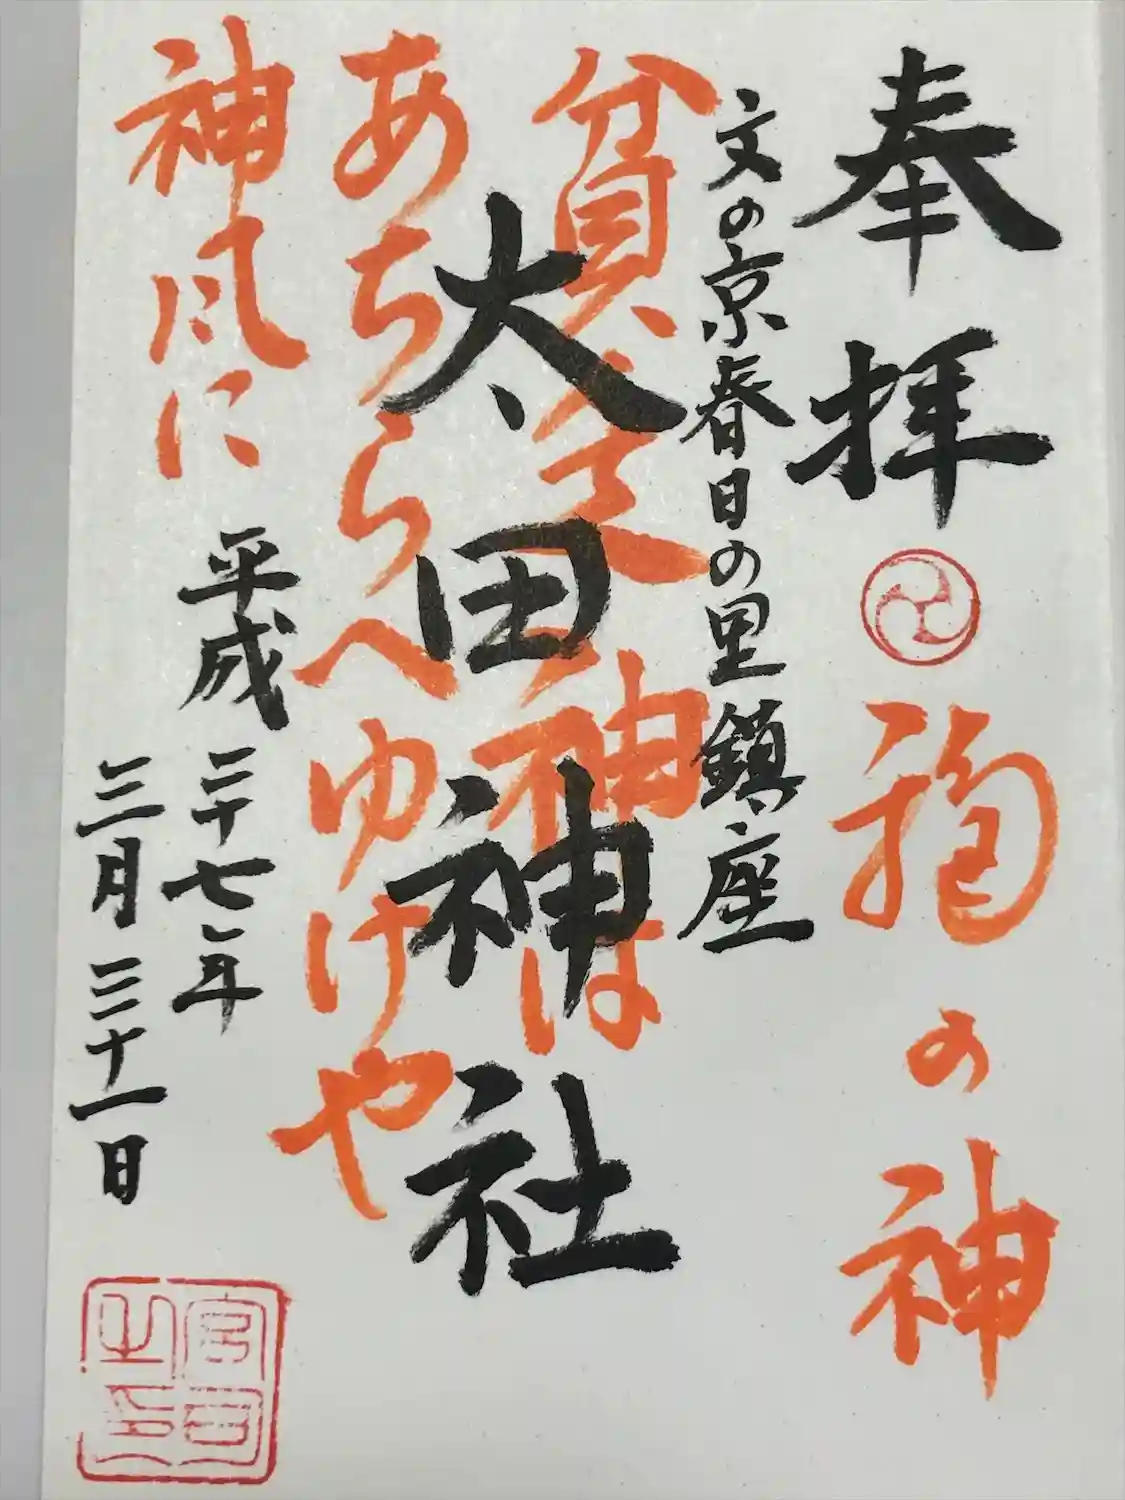 奉拝
の神
文の京春日の里鎮座
太田神社
貧乏神は
あちらへゆけや
神風に
平成二十七年
三月三十一日
宮司之印